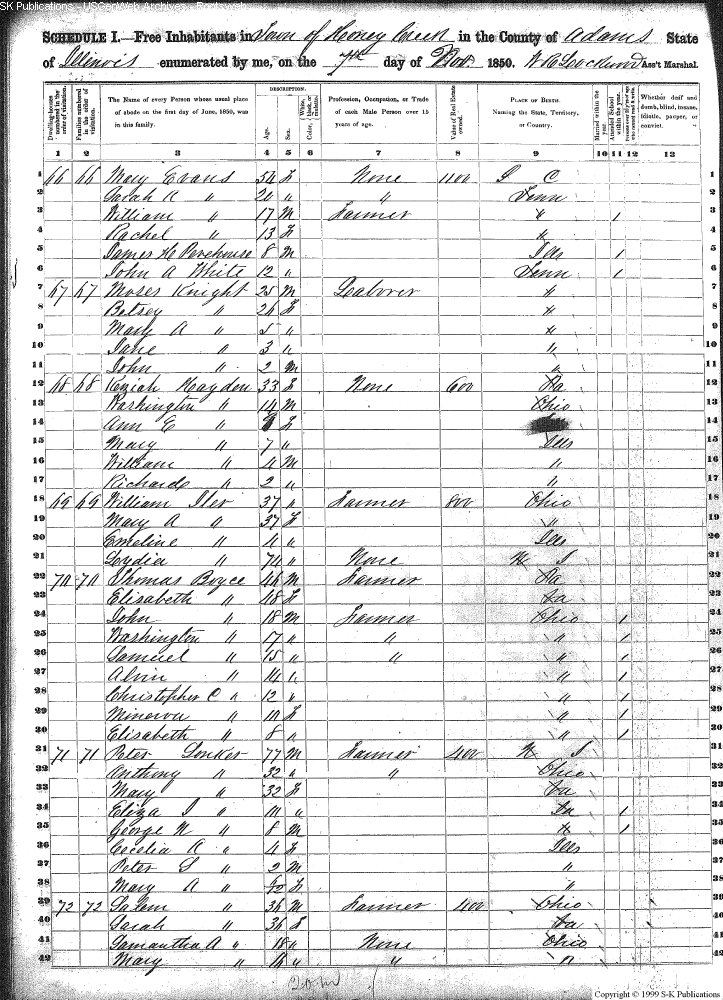 SK Publications - USGenWeb Archives - Backusnd
SCHEDULE I.—Free Inhabitants in Town of Honey Creek in the County of Adams State
of Illinois enumerated by me, on the 7th day of Nov 1850. Ass't Marshal.
Dwelling-houses numbered in the order of visitation.
Families numbered in the order of visitation.
The Name of every Person whose usual place of abode on the first day of June, 1850, was in this family.
DESCRIPTION.
Age.
Sex.
White, Color, black, or mulatto.
Profession, Occupation, or Trade of each Male Person over 15 years of age.
Value of Real Estate owned.
PLACE OF BIRTH. Naming the State, Territory, or Country.
Married within the year.
Attended School within the year.
Persons over 20 y'rs of age who cannot read & write.
Whether deaf and dumb, blind, insane, idiotic, pauper, or convict.
1 2 3 4 5 6 7 8 9 10 11 12 13
1 66 66 Mary Evans 54 f None 1100 S C 1
2 Sarah A " 20 " " Tenn 2
3 William " 17 M Farmer " 1 3
4 Rachel " 13 f " 4
5 James H 8 M Ills 1 5
6 John A White 12 " Tenn 1 6
7 67 67 Moses Knight 25 M Leaborer " 7
8 Betsey " 26 f " 8
9 Mary A " 5 " " 9
10 Jane " 3 " " 10
11 John " 2 M " 11
12 68 68 Keziah Haydon 33 f None 600 Pa 12
13 Washington " 14 M Ohio 13
14 Ann E " f 14
15 Mary " 7 " Ills 15
16 William " 4 M " 16
17 Richards " 2 " " 17
18 69 69 William Iler 37 " Farmer 800 Ohio 18
19 Mary A " 37 f " 19
20 Emeline " 4 " Ills 20
21 Lydia " 74 " None N J 21
22 70 70 Thomas Boyce 46 M Farmer Pa 22
23 Elisabeth " 48 f Va 23
24 John " 18 M Farmer Ohio 1 24
25 Washington " 17 " " " 1 25
26 Samuel " 15 " " " 1 26
27 Alvin " 14 " " 1 27
28 Christopher C " 12 " " 1 28
29 Minerva " 10 f " 1 29
30 Elisabeth " 8 " " 1 30
31 71 71 Peter Lonker 77 M Farmer 400 N J 31
32 Anthony " 32 " " Ohio 32
33 Mary " 32 f Va 33
34 Eliza J " 10 " 1 34
35 George W " 8 M " 1 35
36 Cecelia A " 4 f Ills 36
37 Peter S " 2 M " 37
38 Mary A " f " 38
39 72 72 Salem " 36 M Farmer 400 Ohio 39
40 Sarah " 36 f Va 40
41 Samantha A " 18 " None Ohio 41
42 Mary " 16 " " " 42
Copyright © 1999 S-K Publications